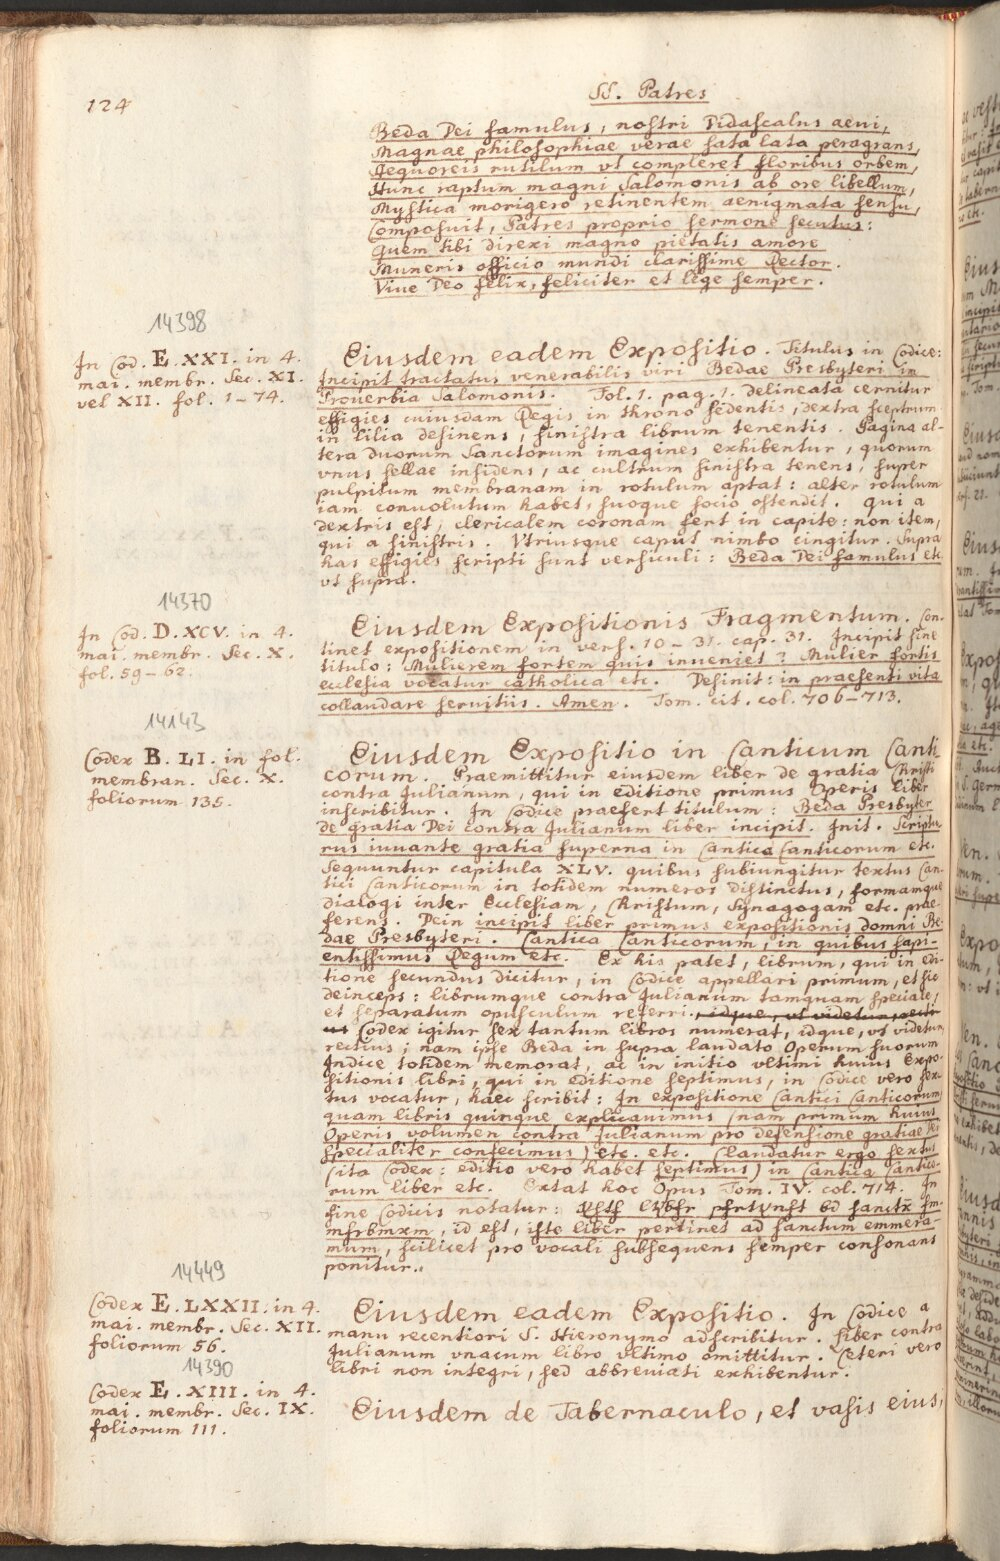 124
SS. Patres
Beda Dei famulus, nostri Didascalus aevi,
Magnae philosophiae verae sata lata peragrans,
Aequoreis rutilum vt compleret floribus orbem,
Hunc raptum magni Salomonis ab ore libellum,
Mystica morigero retinentem aenigmata sensu,
Composuit, Patres proprio sermone secutus:
Quem tibi direxi magno pietatis amore
Muneris officio mundi clarissime Rector.
Viue Deo felix, feliciter et lege semper.
14398
In Cod. E. XXI. in 4.
mai. membr. Sec. XI.
vel XII. fol. 1–74.
Eiusdem eadem Expositio. Titulus in Codice:
Incipit tractatus venerabilis viri Bedae Presbyteri in
Prouerbia Salomonis. Fol. 1. pag. 1. delineata cernitur
effigies cuiusdam Regis in throno sedentis, dextra sceptrum
in lilia desinens, sinistra librum tenentis. Pagina al-
tera duorum Sanctorum imagines exhibentur, quorum
vnus sellae insidens, ac cultrum sinistra tenens, super
pulpitum membranam in rotulum aptat: alter rotulum
iam conuolutum habet, suoque socio ostendit. qui a
dextris est, clericalem coronam fert in capite: non item,
qui a sinistris. Vtriusque caput nimbo cingitur. Supra
has effigies scripti sunt versiculi: Beda Dei famulus etc.
vt supra.
14370
In Cod. D. XCV. in 4.
mai. membr. Sec. X.
fol. 59–62.
Eiusdem Expositionis Fragmentum. Con-
tinet expositionem in vers. 10–31. cap. 31. Incipit sine
titulo: Mulierem fortem quis inueniet? Mulier fortis
ecclesia vocatur catholica etc. Desinit: in praesenti vita
collaudare seruitiis. Amen. Tom. cit. col. 706–713.
14143
Codex B. LI. in fol.
membran. Sec. X.
foliorum 135.
Eiusdem Expositio in Canticum Canti
corum. Praemittitur eiusdem liber de gratia Christi
contra Julianum, qui in editione primus Operis liber
inscribitur. In Codice praefert titulum: Beda Presbyter
de gratia Dei contra Julianum liber incipit. Init. Scriptu
rus iuuante gratia superna in Cantica Canticorum etc.
Sequuntur capitula XLV. quibus subiungitur textus Can-
tici Canticorum in totidem numeros distinctus, formamque
dialogi inter Ecclesiam, Christum, Synagogam etc. prae-
ferens. Dein incipit liber primus expositionis domni Be-
dae Presbyteri. Cantica Canticorum, in quibus sapi-
entissimus Regum etc. Ex his patet, librum, qui in edi-
tione secundus dicitur, in Codice appellari primum, et sic
deinceps: librumque contra Julianum tamquam speciale,
et separatum opusculum referri. idque, vt videtur, recti
us Codex igitur sex tantum libros numerat, idque, vt videtur,
rectius; nam ipse Beda in supra laudato Operum suorum
Indice totidem memorat, ac in initio vltimi huius Expo-
sitionis libri, qui in editione septimus, in Codice vero sex-
tus vocatur, haec scribit: In expositione Cantici Canticorum,
quam libris quinque explicauimus (nam primum huius
Operis volumen contra Julianum pro defensione gratiae Dei
specialiter confecimus) etc. etc. Claudatur ergo sextus
(ita Codex: editio vero habet septimus) in Cantica Cantico-
rum liber etc. Extat hoc Opus Tom. IV. col. 714. In
fine Codicis notatur:
, id est, iste liber pertinet ad sanctum emmera-
mum, scilicet pro vocali subsequens semper consonans
ponitur.
14449
Codex E. LXXII. in 4.
mai. membr. Sec. XII.
foliorum 56.
Eiusdem eadem Expositio. In Codice a
manu recentiori S. Hieronymo adscribitur. Liber contra
Julianum vnacum libro vltimo omittitur. Ceteri vero
libri non integri, sed abbreuiati exhibentur.
14390
Codex E. XIII. in 4.
mai. membr. Sec. IX.
foliorum 111.
Eiusdem de Tabernaculo, et vasis eius,